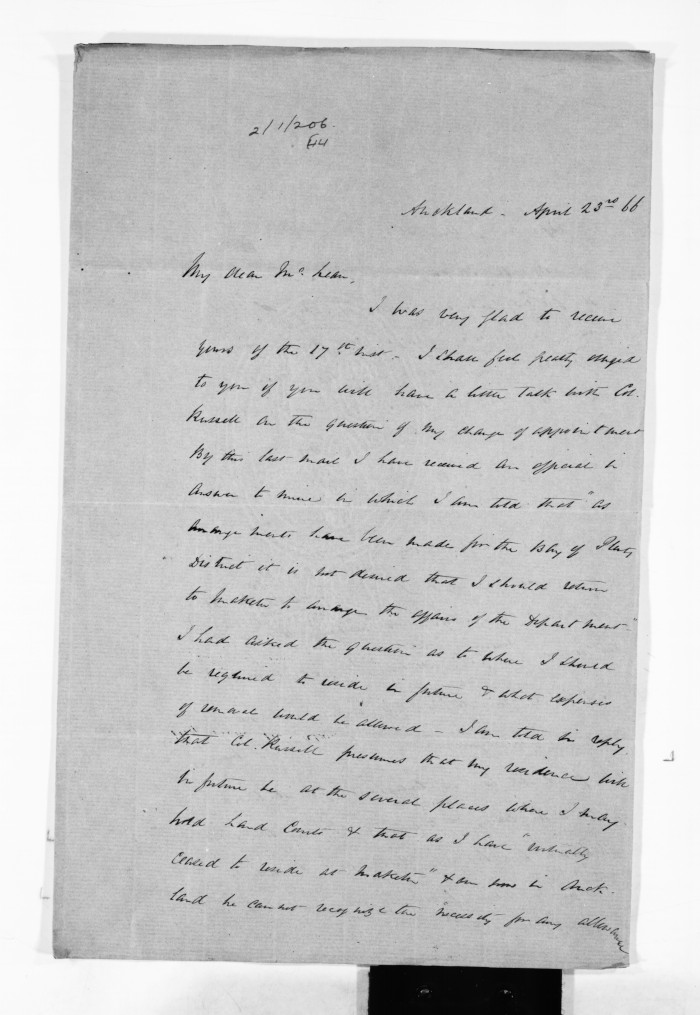 2/1/206.
£44
Auckland - April 23rd 66
My dear McLean,
I was very glad to receive
yours of the 17th inst - I shall feel greatly obliged
to you if you will have a little talk with Col.
Russell on the question of my change of appointment
By this last mail I have received an official in
answer to mine in which I am told that "as
arrangements have been made for the Bay of Plenty
District it is not desired that I should return
to Maketu to arrange the affairs of the Department"
I had asked the question as to where I should
be required to reside in future & what expenses
of removal would be allowed - I am told in reply
that Col. Russell presumes that my residence will
in future be at the several places where I may
hold Land Courts & that as I have "virtually
ceased to reside at Maketu" & am now in Auck-
land he cannot recognize the necessity for any allowance